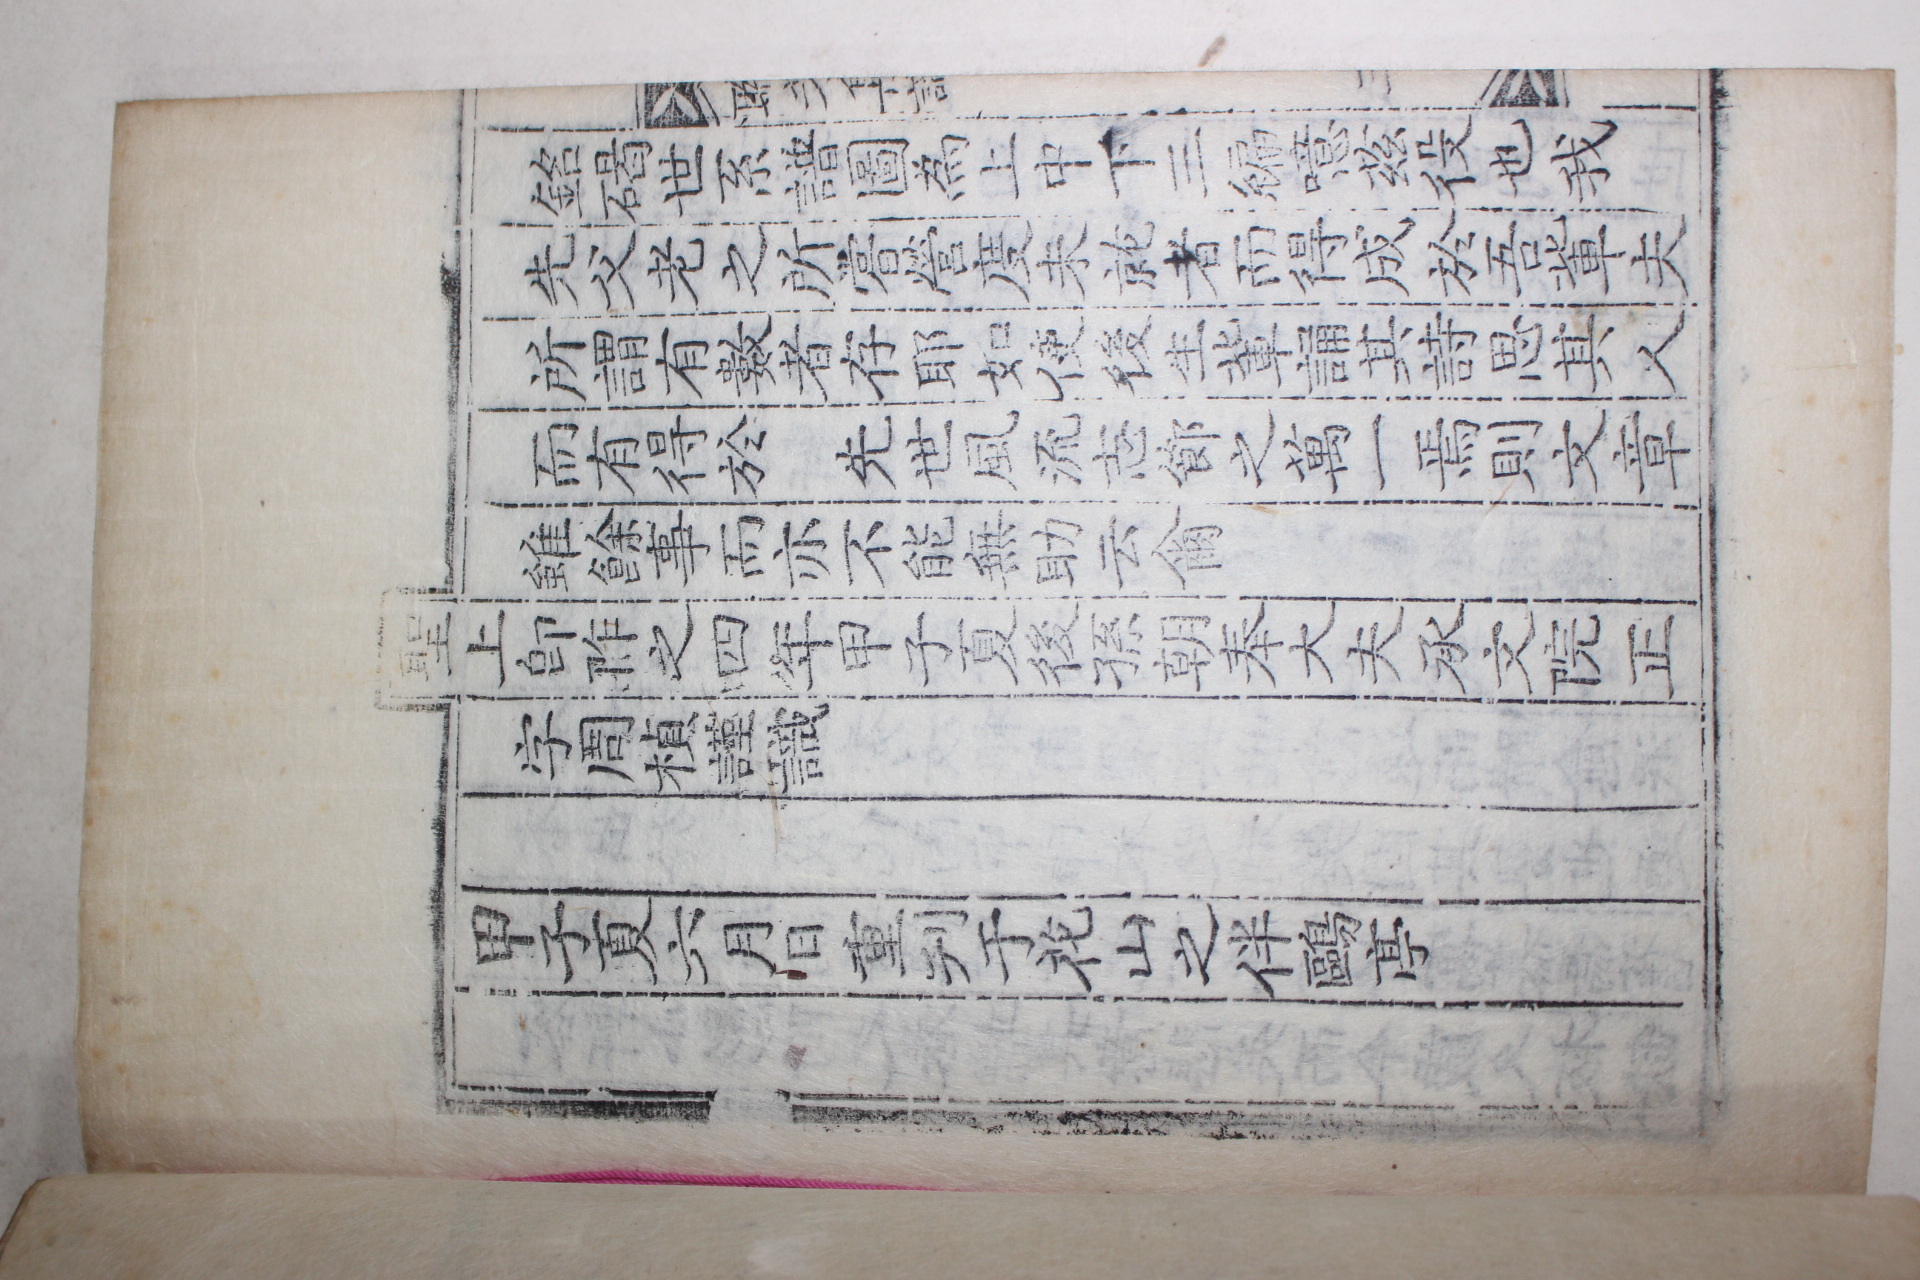 銘碣世系譜圖為上中下三編噫茲役也我
先父老之所嘗營度未就者而得成於吾輩夫
所謂有數者存耶如使後生輩誦其詩思其人
而有得於 先世風流志節之萬一焉則文章
雖餘事而亦不能無助云爾
聖上卽阼之四年甲子夏後孫朝奉大夫承文院正
字周楨謹識
甲子夏六月日重刋于花山之伴鷗亭